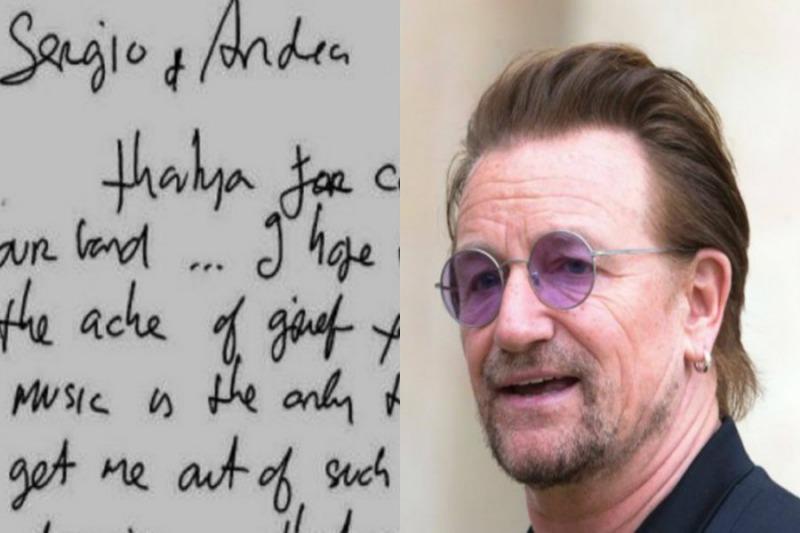 Sergio & Andrea
thankya for c
our band ... I hope
the ache of grief
music is the only t
get me out of such